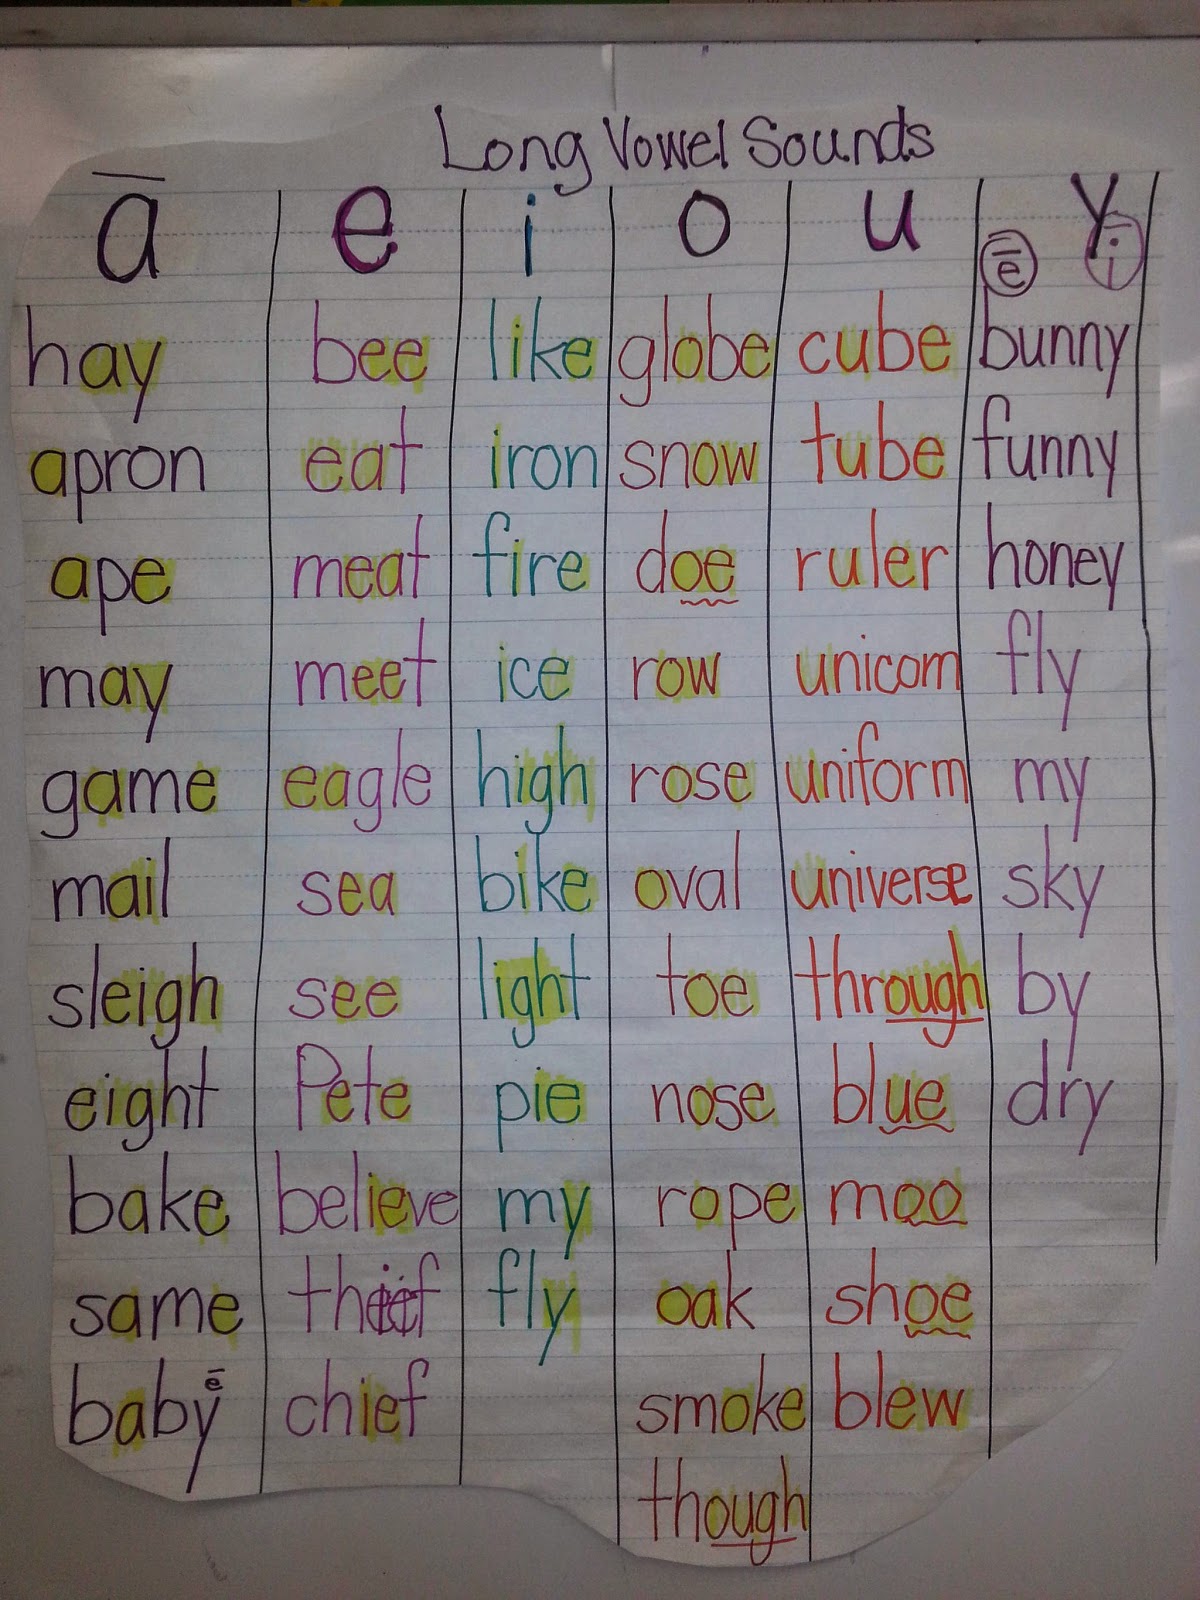 Long Vowel Sounds
ā e i o u y
ē ī
hay bee like globe cube bunny
apron eat iron snow tube funny
ape meat fire doe ruler honey
may meet ice row unicorn fly
game eagle high rose uniform my
mail sea bike oval universe sky
sleigh see light toe through by
eight Pete pie nose blue dry
bake believe my rope moo
same thief fly oak shoe
baby ē chief smoke blew
though